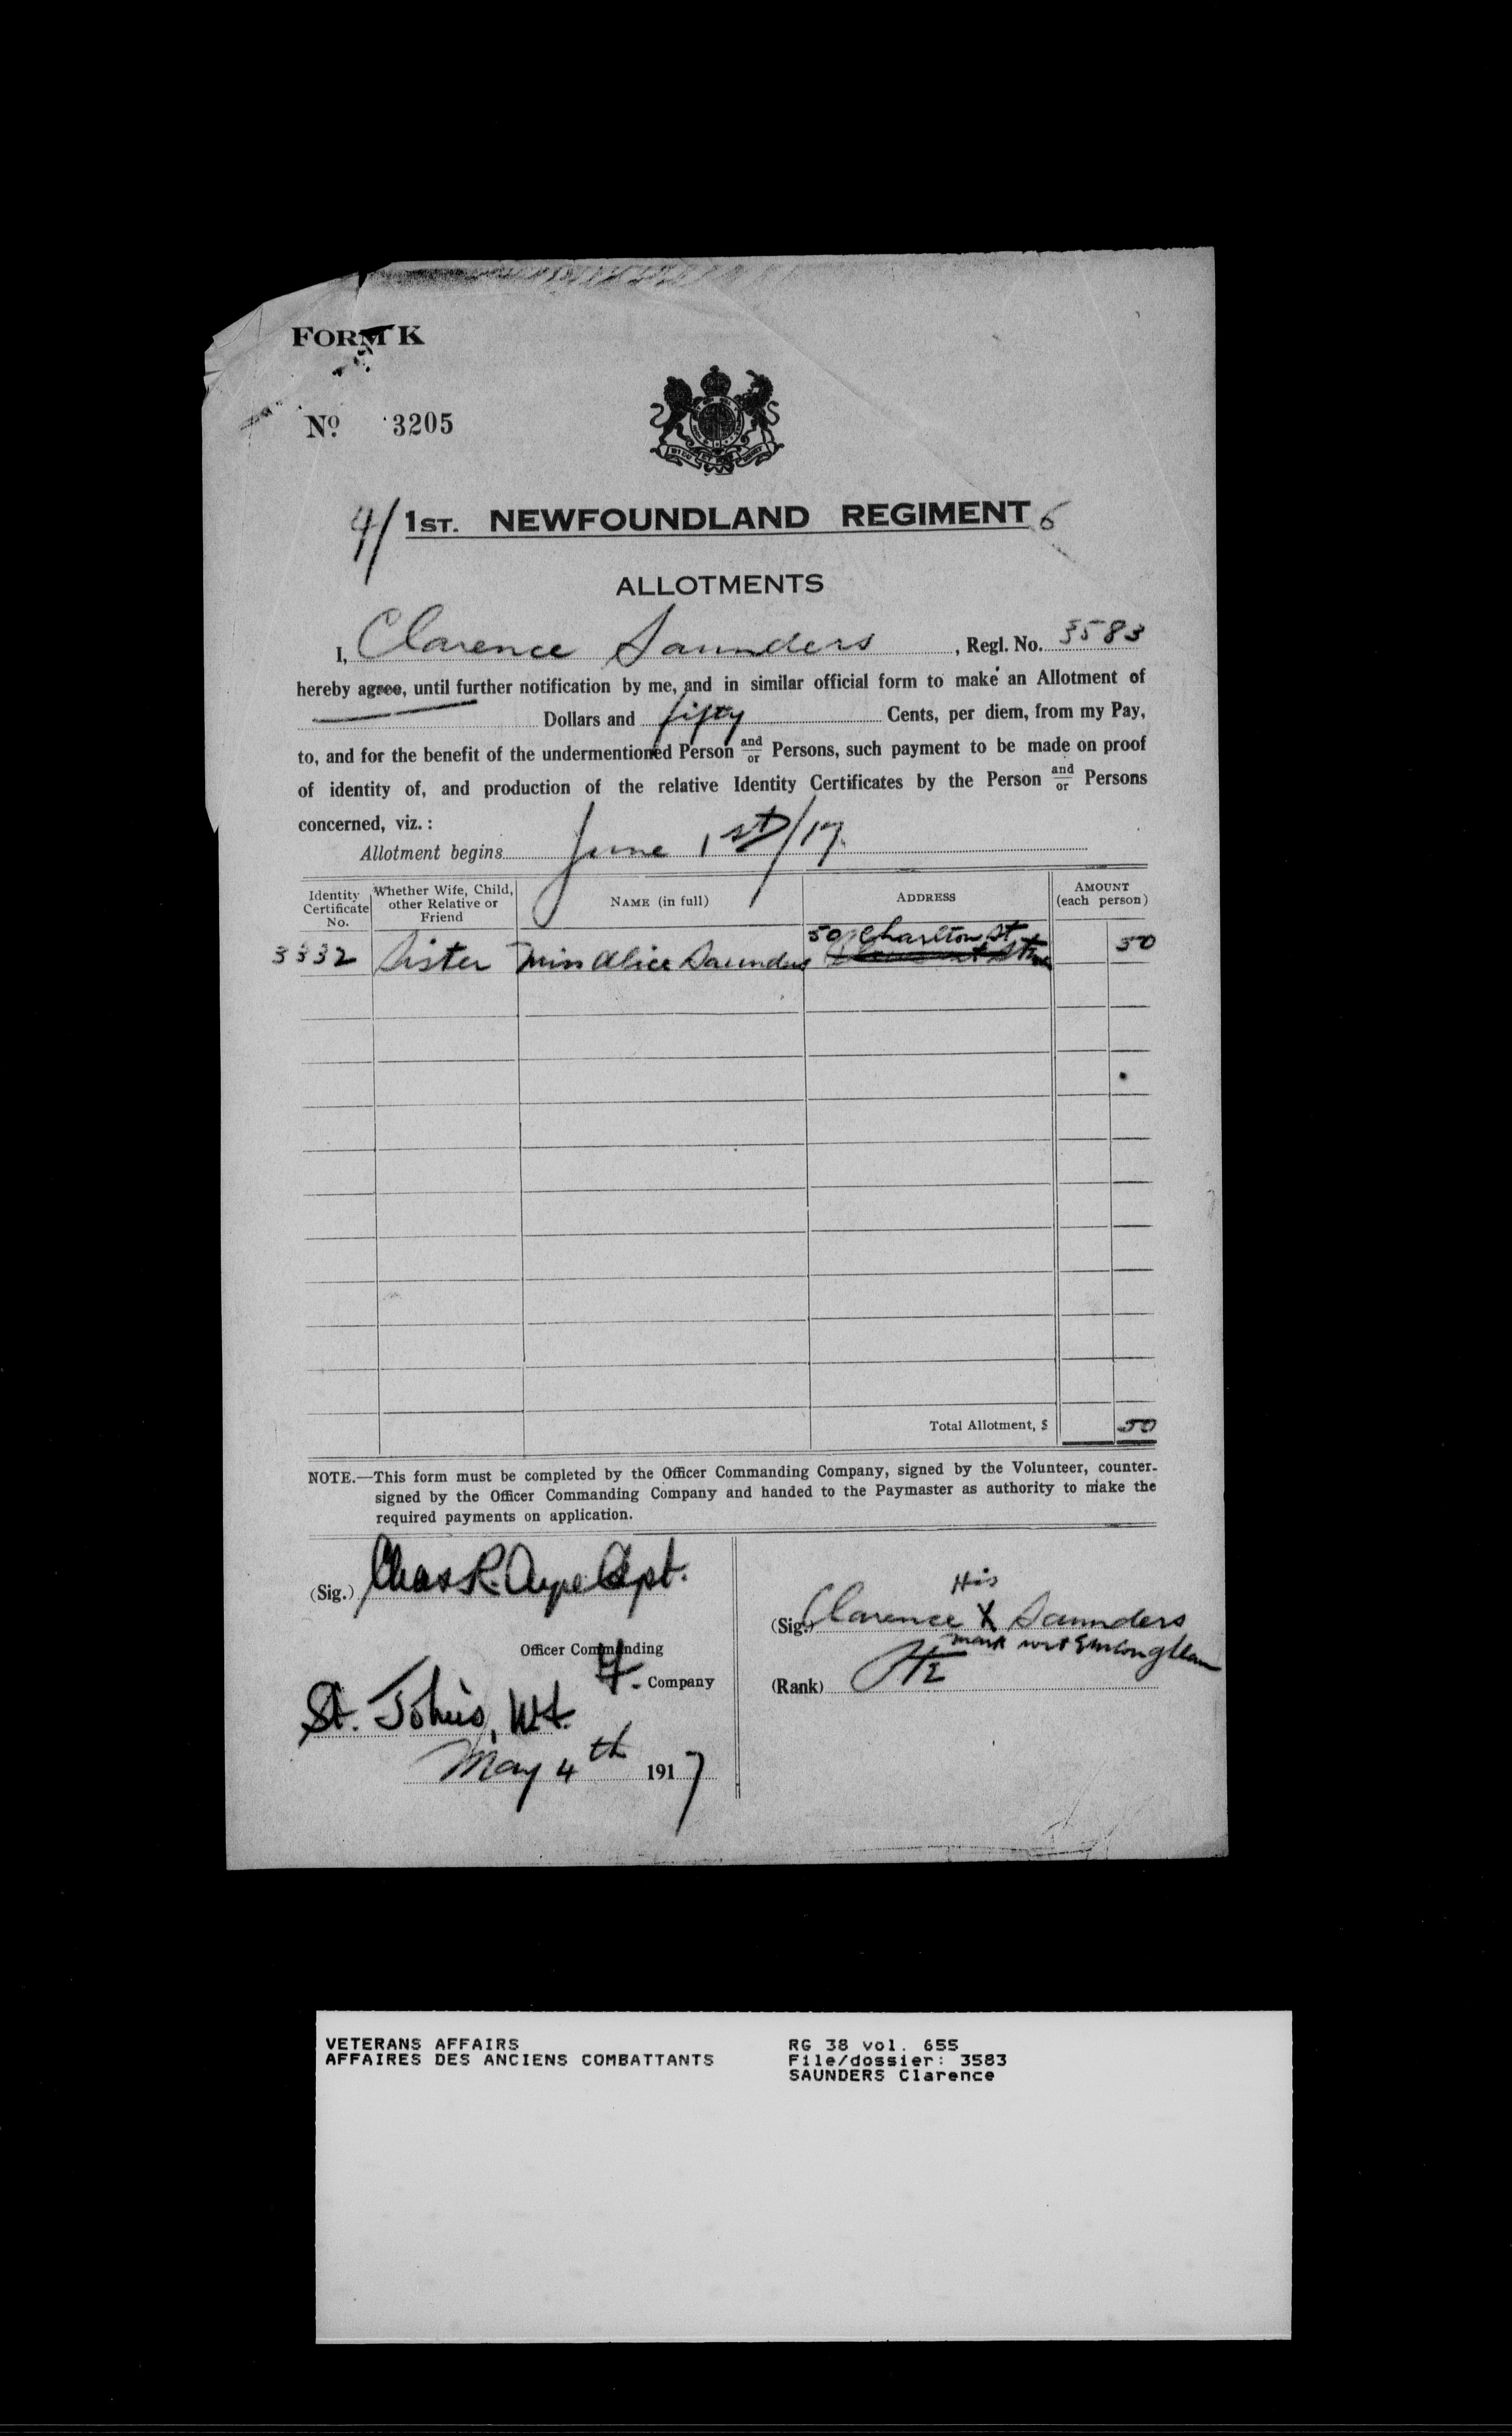 FORM K
No 3205
4/ 1ST. NEWFOUNDLAND REGIMENT 6
ALLOTMENTS
I, Clarence Saunders, Regl. No. 3583
hereby agree, until further notification by me, and in similar official form to make an Allotment of
Dollars and fifty Cents, per diem, from my Pay,
to, and for the benefit of the undermentioned Person and/or Persons, such payment to be made on proof
of identity of, and production of the relative Identity Certificates by the Person and/or Persons
concerned, viz. :
Allotment begins June 1st/17.
Identity Certificate No. Whether Wife, Child, other Relative or Friend NAME (in full) ADDRESS AMOUNT (each person)
50 Charlton St
3332 Sister Miss Alice Saunders 50
Total Allotment, $ 50
NOTE.—This form must be completed by the Officer Commanding Company, signed by the Volunteer, counter-
signed by the Officer Commanding Company and handed to the Paymaster as authority to make the
required payments on application.
(Sig.) Chas R. Ayre Capt.
Officer Commanding
F. Company
St. John's, Nfld.
May 4th 1917
His
(Sig.) Clarence X Saunders
mark
(Rank) Pte
VETERANS AFFAIRS
AFFAIRES DES ANCIENS COMBATTANTS
RG 38 vol. 655
File/dossier: 3583
SAUNDERS Clarence